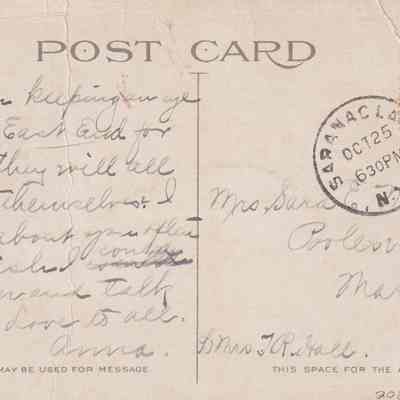 POST CARD
keeping an eye
East End for
they will all
themselves. I
about you often
wish I could
and talk
Love to all.
Anna.
MAY BE USED FOR MESSAGE.
SARANAC LA
OCT 25
630PM
N.Y
Mrs. Sara
Poolesv
Mar
Mrs T. R. Hall.
THIS SPACE FOR THE A
208